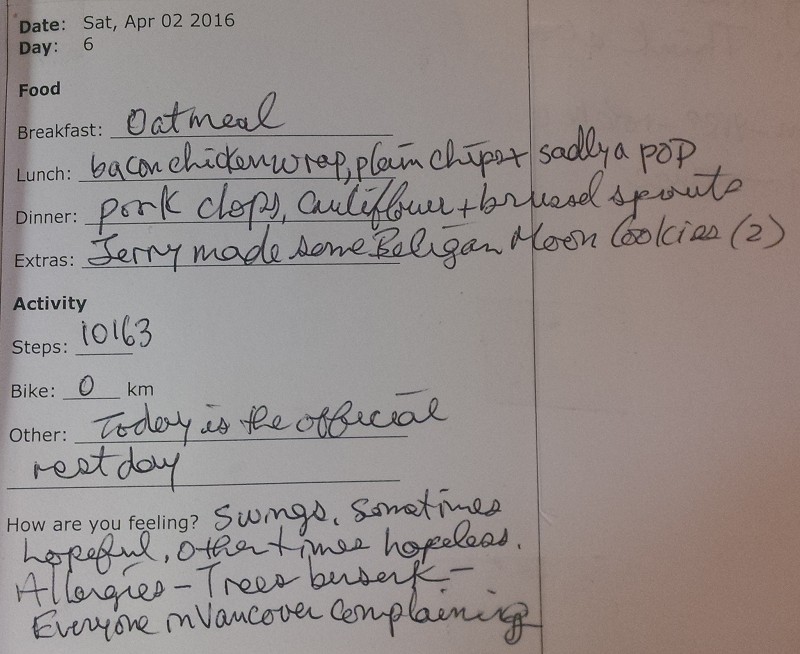 Date: Sat, Apr 02 2016
Day: 6
Food
Breakfast: Oatmeal
Lunch: bacon chicken wrap, plain chips + sadly a pop
Dinner: pork chops, Cauliflower + brussel sprouts
Extras: Jerry made some Beligan Moon Cookies (2)
Activity
Steps: 10163
Bike: 0 km
Other: Today is the official
rest day
How are you feeling? Swings. Sometimes
hopeful, other times hopeless.
Allergies - Trees berserk -
Everyone in Vancover Complaining